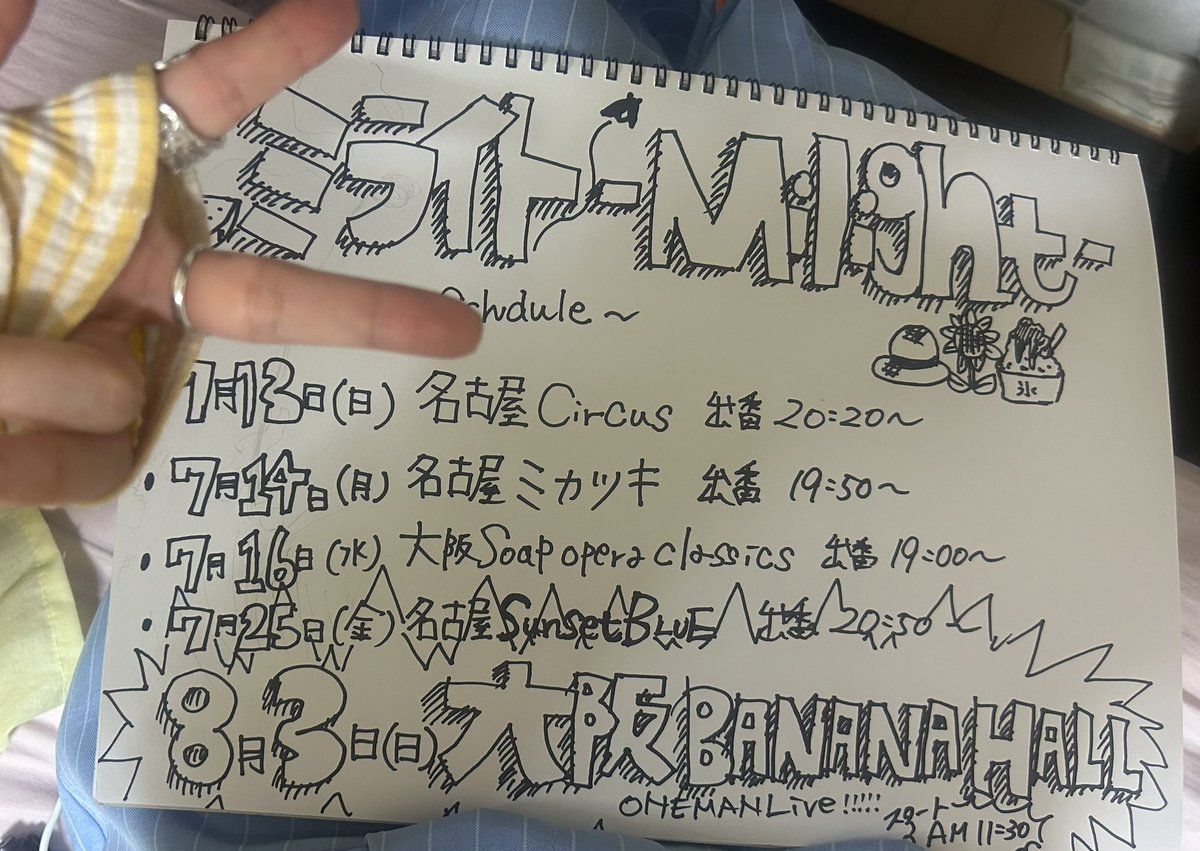 ミライト-Milight-
Schdule～
7月13日(日) 名古屋Circus 出番 20:20～
• 7月14日(月) 名古屋ミカヅキ 出番 19:50～
• 7月16日(水) 大阪Soap opera classics 出番 19:00～
• 7月25日(金) 名古屋SunsetBLuE 出番 20:50～
氷
8月3日(日)大阪BANANAHALL
ONEMANLive!!!!!
スタート AM11:30